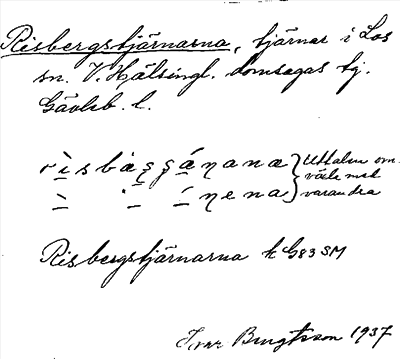 Risbergstjärnarna, tjärnar i Los
sn. V. Hälsingl. domsagas tg.
Gävleb. l.
Uttalen om-
växla med
varandra
Risbergstjärnarna k G83 SM
Ivar Bengtsson 1937